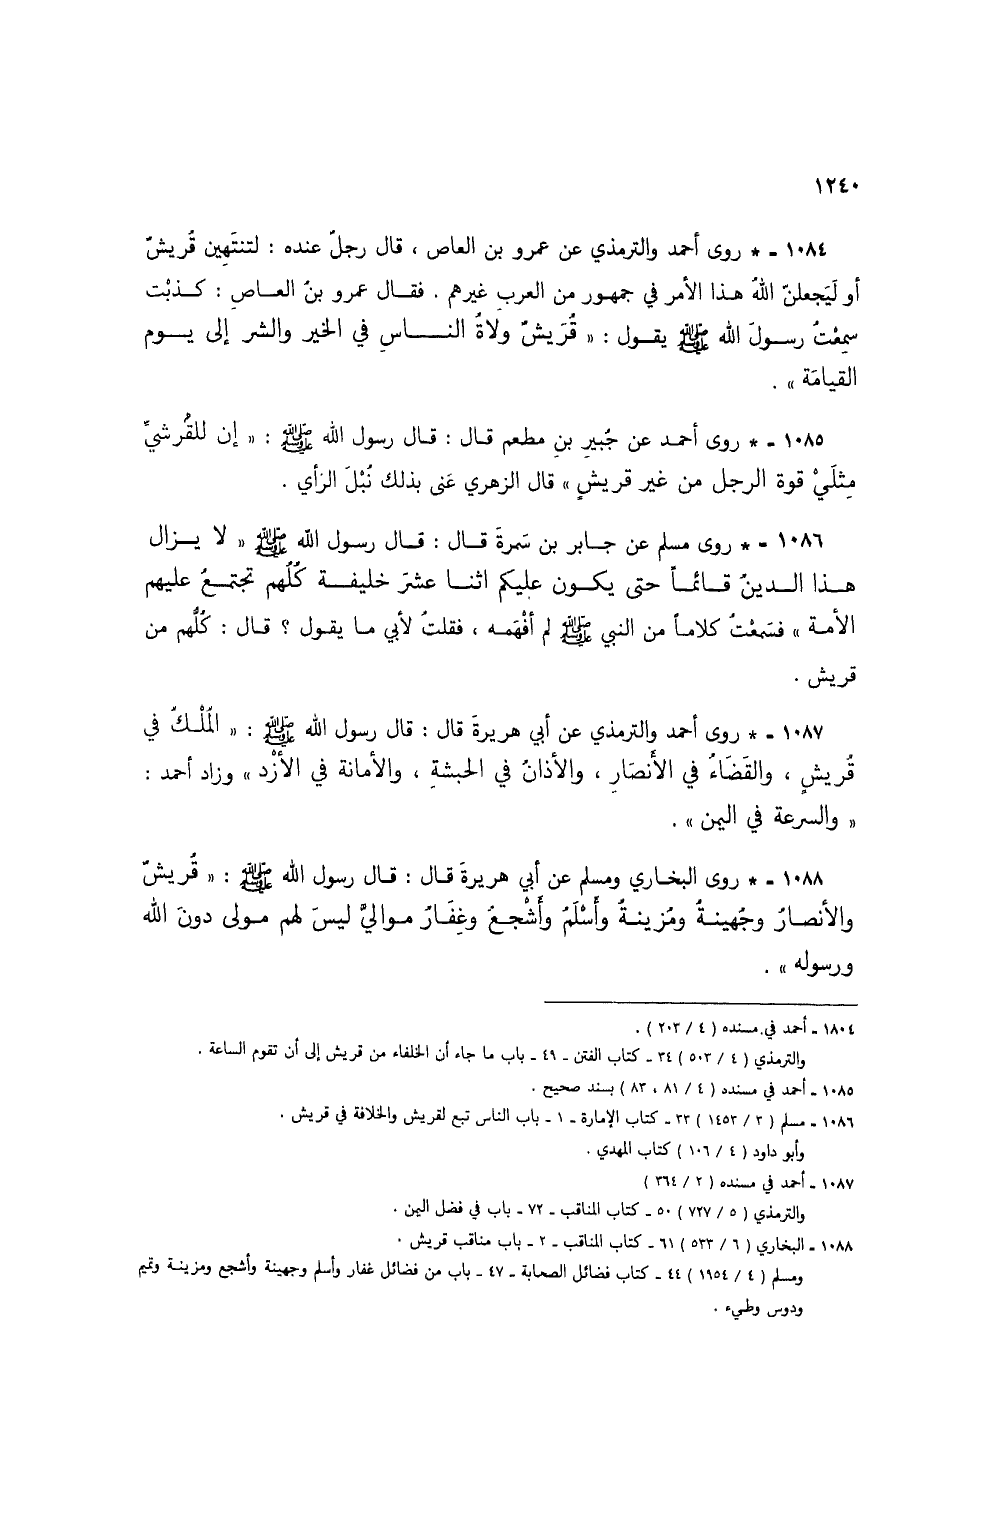 ١٢٤٠
١٠٨٤ ـ * روى أحمد والترمذي عن عمرو بن العاص ، قال رجلٌ عنده : لتنتَهِين قُريشٌ
أو لَيَجعلنّ اللهُ هذا الأمر في جمهور من العربِ غيرهم . فقال عمرو بنُ العاصِ : كذبْت
سمِعْتُ رسولَ الله ﷺ يقول : « قُرَيشٌ ولاةُ الناسِ في الخير والشر إلى يوم
القيامَة » .
١٠٨٥ ـ * روى أحمد عن جُبيرِ بنِ مطعم قال : قال رسول الله ﷺ : « إن للقُرشيِّ
مِثلَيْ قوة الرجل من غير قريشٍ » قال الزهري عَنى بذلك نُبْلَ الرَأي .
١٠٨٦ ـ * روى مسلم عن جابر بن سَمرةَ قال : قال رسول الله ﷺ « لا يزال
هذا الدينُ قائماً حتى يكون عليكم اثنا عشرَ خليفة كُلُهم تجتمعُ عليهم
الأمة » فسَمعْتُ كلاماً من النبي ﷺ لم أفْهَمه ، فقلتُ لأبي ما يقول ؟ قال : كُلُّهم من
قريش .
١٠٨٧ ـ * روى أحمد والترمذي عن أبي هريرةَ قال : قال رسول الله ﷺ : « الُمْلكُ في
قُريشٍ ، والقَضَاءُ في الأَنصَارِ ، والأذانُ في الحبشةِ ، والأمانة في الأزْد » وزاد أحمد :
« والسرعة في اليمن » .
١٠٨٨ ـ * روى البخاري ومسلم عن أبي هريرةَ قال : قال رسول الله ﷺ : « قُريشٌ
والأنصارُ وجُهينةُ ومُزينةُ وأَسْلَمُ وأَشْجعُ وغِفَارُ مواليَّ ليسَ لهم مولى دونَ الله
ورسوله » .
١٨٠٤ ـ أحمد في مسنده ( ٤ / ٢٠٣ ) .
والترمذي ( ٤ / ٥٠٣ ) ٣٤ ـ كتاب الفتن ـ ٤٩ ـ باب ما جاء أن الخلفاء من قريش إلى أن تقوم الساعة .
١٠٨٥ ـ أحمد في مسنده ( ٤ / ٨١ ، ٨٣ ) بسند صحيح .
١٠٨٦ ـ مسلم ( ٣ / ١٤٥٣ ) ٣٣ ـ كتاب الإمارة ـ ١ ـ باب الناس تبع لقريش والخلافة في قريش .
وأبو داود ( ٤ / ١٠٦ ) كتاب المهدي .
١٠٨٧ ـ أحمد في مسنده ( ٢ / ٣٦٤ )
والترمذي ( ٥ / ٧٢٧ ) ٥٠ ـ كتاب المناقب ـ ٧٢ ـ باب في فضل اليمن .
١٠٨٨ ـ البخاري ( ٦ / ٥٣٣ ) ٦١ ـ كتاب المناقب ـ ٢ ـ باب مناقب قريش .
ومسلم ( ٤ / ١٩٥٤ ) ٤٤ ـ كتاب فضائل الصحابة ـ ٤٧ ـ باب من فضائل غفار وأسلم وجهينة وأشجع ومزينة وتميم
ودوس وطيء .